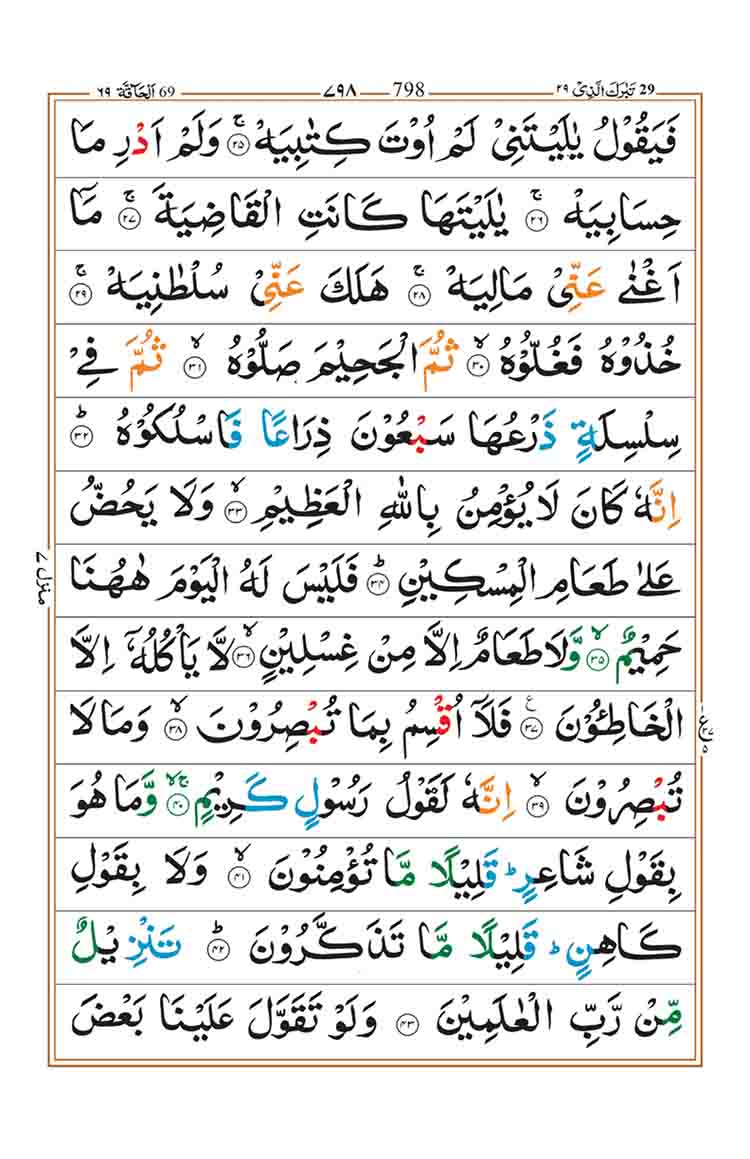 29 تَبٰرَكَ الَّذِیْ ٢٩ 798 ٧٩٨ 69 اَلْحَآقَّة ٦٩
فَیَقُوْلُ یٰلَیْتَنِیْ لَمْ اُوْتَ كِتٰبِیَهْ ۚ ﴿٢٥﴾ وَلَمْ اَدْرِ مَا
حِسَابِیَهْ ۚ ﴿٢٦﴾ یٰلَیْتَهَا كَانَتِ الْقَاضِیَةَ ۚ ﴿٢٧﴾ مَاۤ
اَغْنٰی عَنِّیْ مَالِیَهْ ۚ ﴿٢٨﴾ هَلَكَ عَنِّیْ سُلْطٰنِیَهْ ۚ ﴿٢٩﴾
خُذُوْهُ فَغُلُّوْهُ ۙ ﴿٣٠﴾ ثُمَّ الْجَحِیْمَ صَلُّوْهُ ۙ ﴿٣١﴾ ثُمَّ فِیْ
سِلْسِلَةٍ ذَرْعُهَا سَبْعُوْنَ ذِرَاعًا فَاسْلُكُوْهُ ؕ ﴿٣٢﴾
اِنَّهٗ كَانَ لَا یُؤْمِنُ بِاللّٰهِ الْعَظِیْمِ ۙ ﴿٣٣﴾ وَلَا یَحُضُّ
عَلٰی طَعَامِ الْمِسْكِیْنِ ؕ ﴿٣٤﴾ فَلَیْسَ لَهُ الْیَوْمَ هٰهُنَا
حَمِیْمٌ ۙ ﴿٣٥﴾ وَّلَا طَعَامٌ اِلَّا مِنْ غِسْلِیْنٍ ۙ ﴿٣٦﴾ لَّا یَاْكُلُهٗۤ اِلَّا
الْخَاطِـُٔوْنَ ۧ ﴿٣٧﴾ فَلَاۤ اُقْسِمُ بِمَا تُبْصِرُوْنَ ۙ ﴿٣٨﴾ وَمَا لَا
تُبْصِرُوْنَ ۙ ﴿٣٩﴾ اِنَّهٗ لَقَوْلُ رَسُوْلٍ كَرِیْمٍ ۚۙ ﴿٤٠﴾ وَّمَا هُوَ
بِقَوْلِ شَاعِرٍ ؕ قَلِیْلًا مَّا تُؤْمِنُوْنَ ۙ ﴿٤١﴾ وَلَا بِقَوْلِ
كَاهِنٍ ؕ قَلِیْلًا مَّا تَذَكَّرُوْنَ ؕ ﴿٤٢﴾ تَنْزِیْلٌ
مِّنْ رَّبِّ الْعٰلَمِیْنَ ﴿٤٣﴾ وَلَوْ تَقَوَّلَ عَلَیْنَا بَعْضَ
منزل ٧